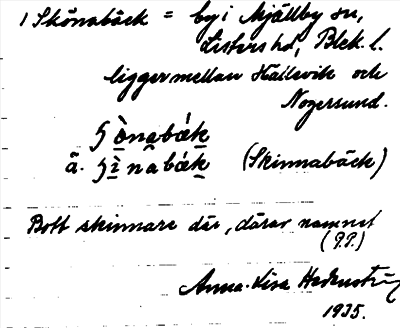 1 Skönabäck = by i Mjällby sn,
Listers hd, Blek. l.
ligger mellan Hällevik och
Nogersund.
ʒònabǽk
ä. ʒìnabǽk (Skinnabäck)
Bott skinnare där, därav namnet
(P.P.)
Anna-Lisa
1935.